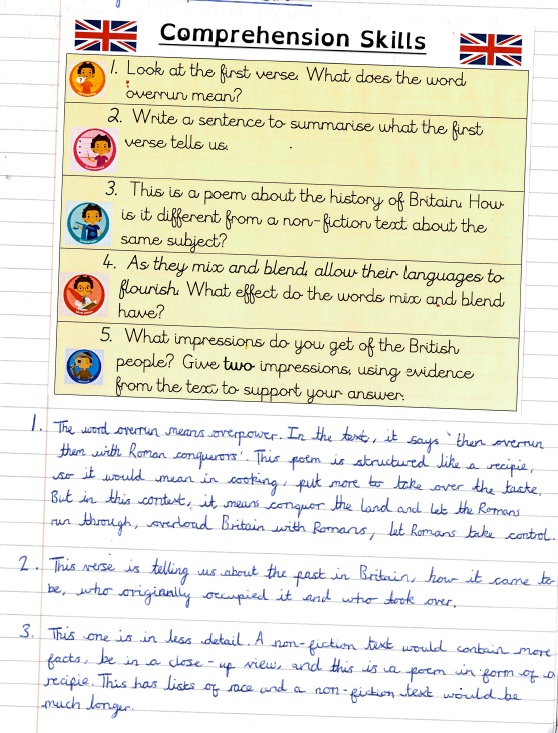 Comprehension Skills
1. Look at the first verse. What does the word
overrun mean?
2. Write a sentence to summarise what the first
verse tells us.
3. This is a poem about the history of Britain. How
is it different from a non-fiction text about the
same subject?
4. As they mix and blend, allow their languages to
flourish. What effect do the words mix and blend
have?
5. What impressions do you get of the British
people? Give two impressions, using evidence
from the text to support your answer.
1. The word overrun means overpower. In the text, it says 'then overrun
them with Roman conquerors'. This poem is structured like a recipie,
so it would mean in cooking, put more to take over the taste.
But in this context, it means conquer the land and let the Romans
run through, overload Britain with Romans, let Romans take control.
2. This verse is telling us about the past in Britain, how it came to
be, who originally occupied it and who took over.
3. This one is in less detail. A non-fiction text would contain more
facts, be in a close-up view, and this is a poem in form of a
recipie. This has lists of race and a non-fiction text would be
much longer.